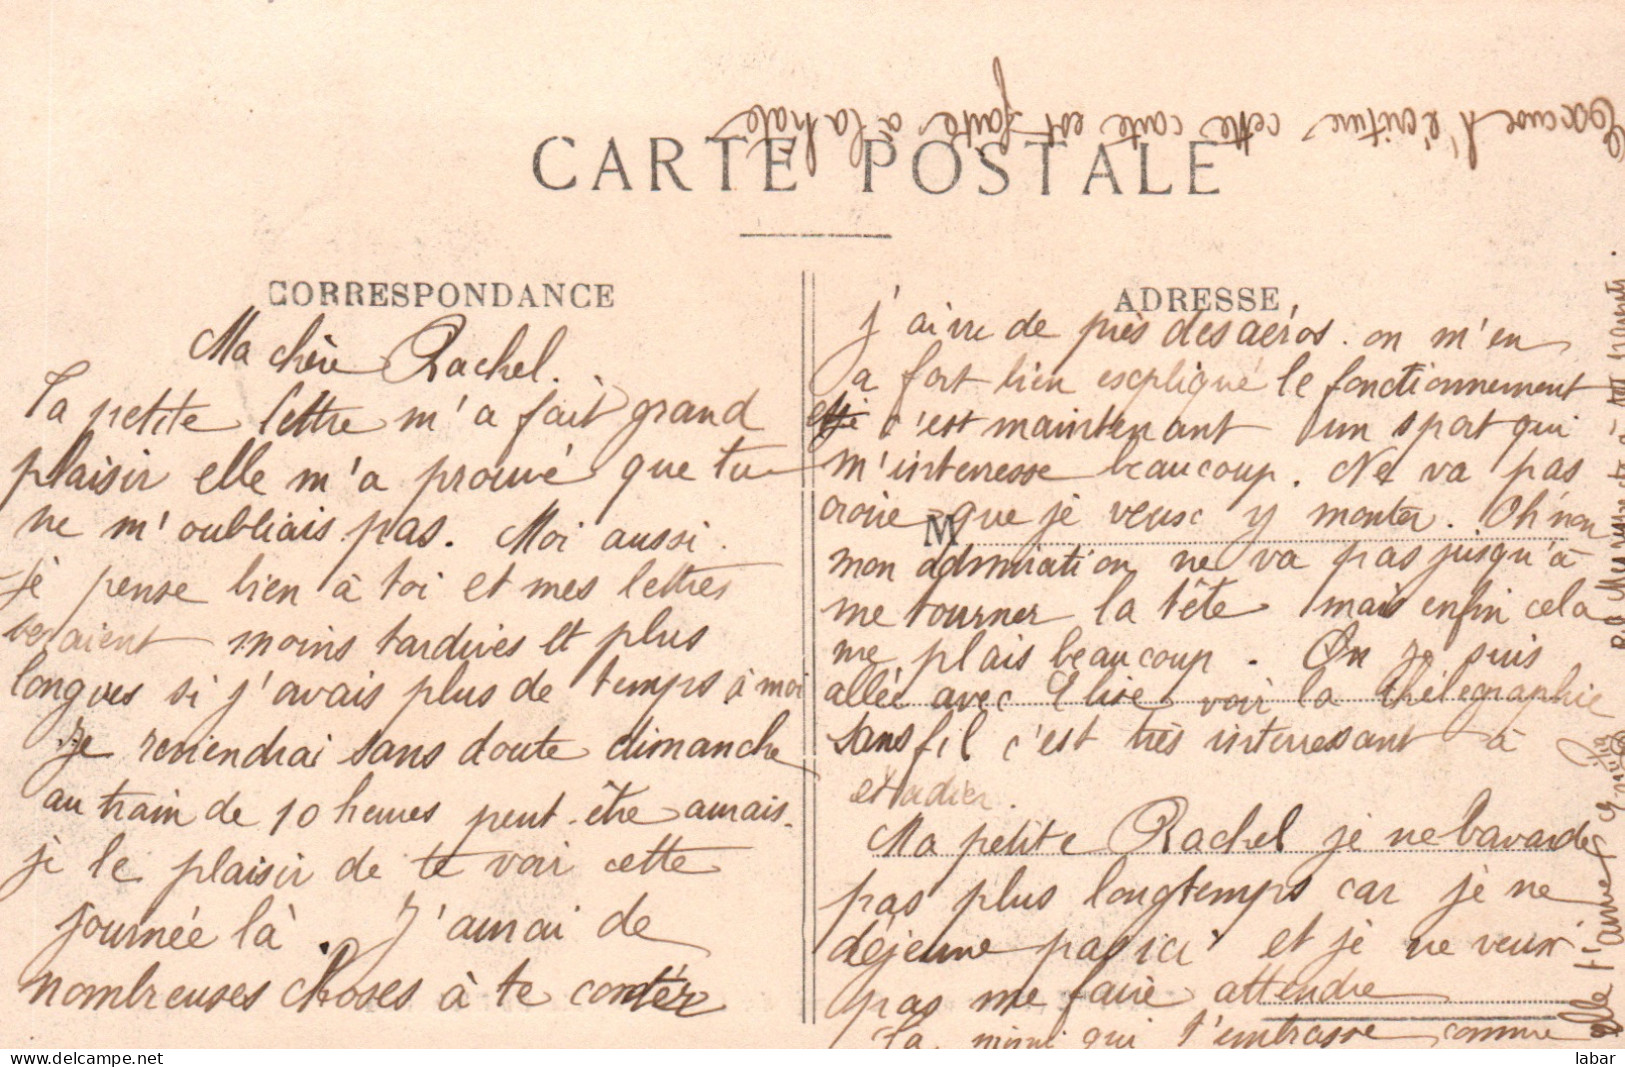 Excuse l'écriture cette carte est faite à la hate
CARTE POSTALE
CORRESPONDANCE
Ma chère Rachel.
Ta petite lettre m'a fait grand
plaisir elle m'a prouvé que tu
ne m'oubliais pas. Moi aussi
je pense bien à toi et mes lettres
seraient moins tardives et plus
longues si j'avais plus de temps à moi
Je reviendrai sans doute dimanche
au train de 10 heures peut-être aurais-
je le plaisir de te voir cette
journée là. J'aurai de
nombreuses choses à te conter
ADRESSE
j'ai vu de près des aéros. on m'en
a fort bien escpliqué le fonctionnement
et c'est maintenant un sport qui
m'interresse beaucoup. Ne va pas
croire que je veusc y monter. Oh! non
M
mon admiration ne va pas jusqu'à
me tourner la tête mais enfin cela
me plais beaucoup. On je suis
allée avec Elise voir la thélegraphie
sans fil c'est très interressant à
etudier.
Ma petite Rachel je ne bavarde
pas plus longtemps car je ne
déjeune pas ici et je ne veux
pas me faire attendre
Ta mimi qui t'embrasse comme
elle t'aime
labar